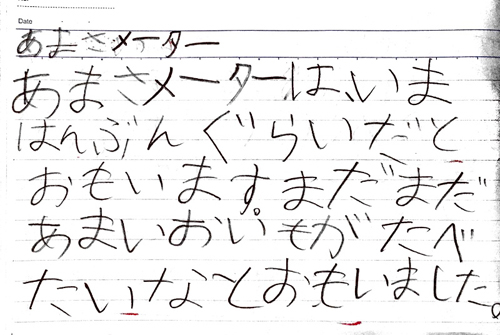 Date
あまさメーター
あまさメーターは、いま
はんぶんぐらいだと
おもいますまだまだ
あまいおいもがたべ
たいなとおもいました。